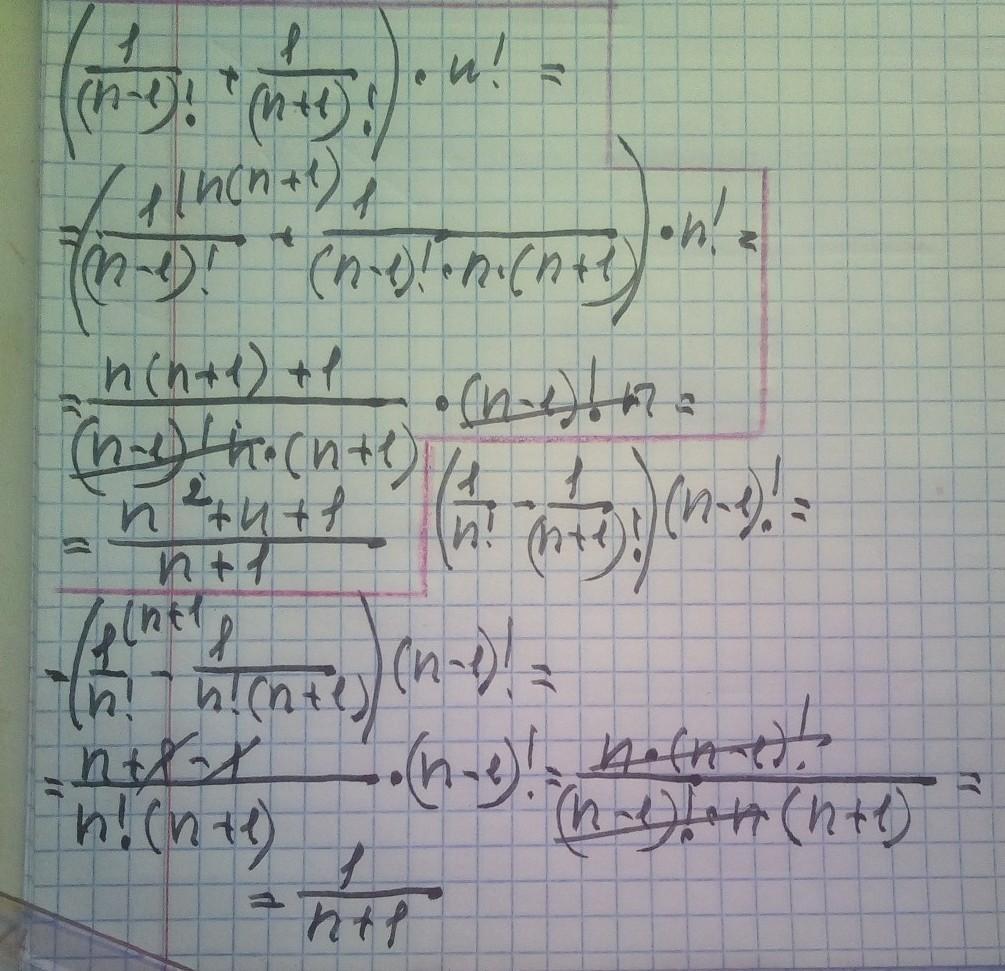 (1/(n-1)! + 1/(n+1)!) · n! =
= (1/(n-1)! |n(n+1) + 1/((n-1)!·n·(n+1))) · n! =
= (n(n+1)+1)/((n-1)! n·(n+1)) · (n-1)! · n =
= (n²+n+1)/(n+1)
(1/n! - 1/(n+1)!)(n-1)! =
= (1/n! (n+1 - 1/(n!(n+1)))(n-1)! =
= (n+1-1)/(n!(n+1)) · (n-1)! = (n·(n-1)!)/((n-1)!·n(n+1)) =
= 1/(n+1)